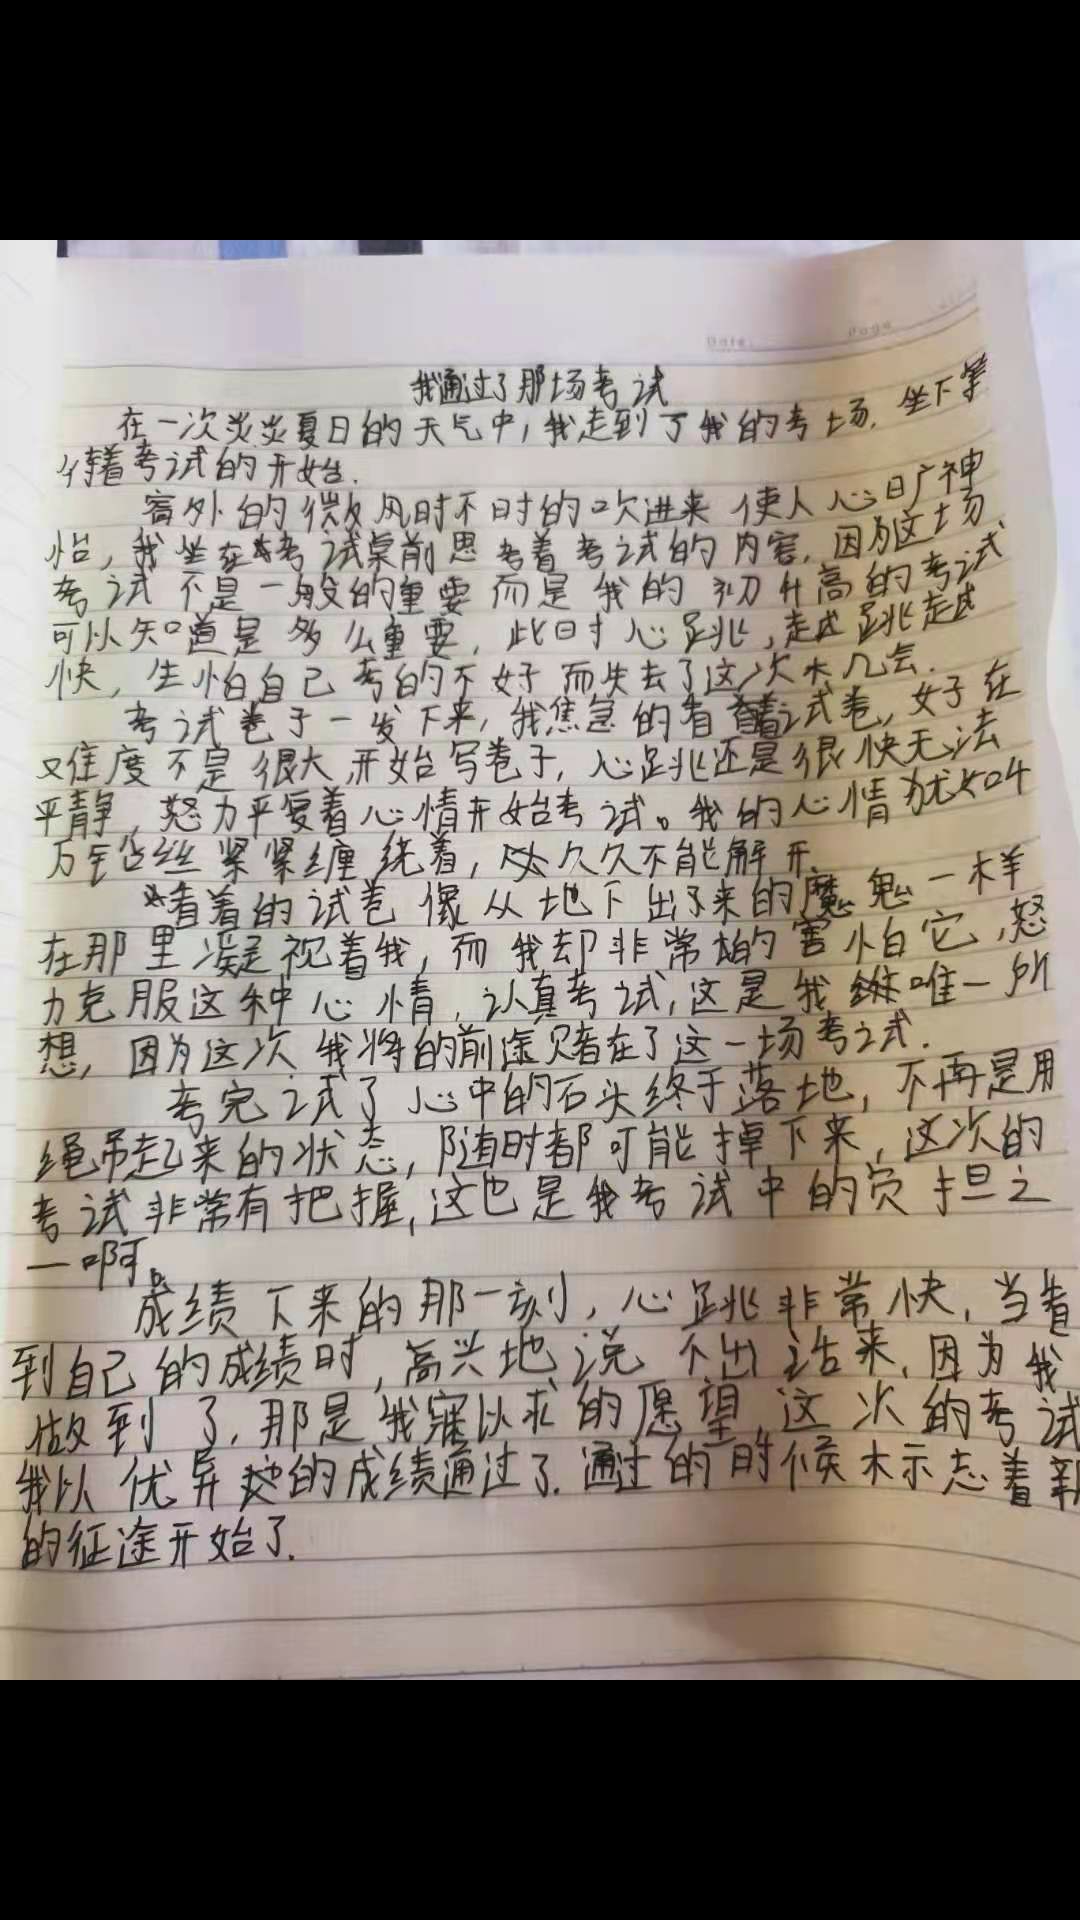 我通过了那场考试
在一次炎炎夏日的天气中，我走到了我的考场．坐下等
待着考试的开始．
窗外的微风时不时的吹进来 使人心旷神
怡，我坐在考试桌前思考着考试的内容．因为这场
考试不是一般的重要而是我的初升高的考试
可以知道是多么重要，此时心跳，越跳越
快，生怕自己考的不好而失去了这次机会．
考试卷子一发下来，我焦急的看着试卷，好在
难度不是很大，开始写卷子，心跳还是很快无法
平静，怒力平复着心情开始考试。我的心情犹如4
万钢丝紧紧缠绕着，久久不能解开．
看着的试卷像从地下出来的魔鬼一样
在那里凝视着我，而我却非常的害怕它，怒
力克服这种心情，认真考试，这是我唯一所
想，因为这次我将的前途赌在了这一场考试．
考完试了心中的石头终于落地，不再是用
绳吊起来的状态，随时都可能掉下来，这次的
考试非常有把握，这也是我考试中的负担之
一啊。
成绩下来的那一刻，心跳非常快，当看
到自己的成绩时，高兴地说不出话来，因为我
做到了，那是我寐以求的愿望，这次的考试
我以优异的成绩通过了．通过的时候标示志着新
的征途开始了．